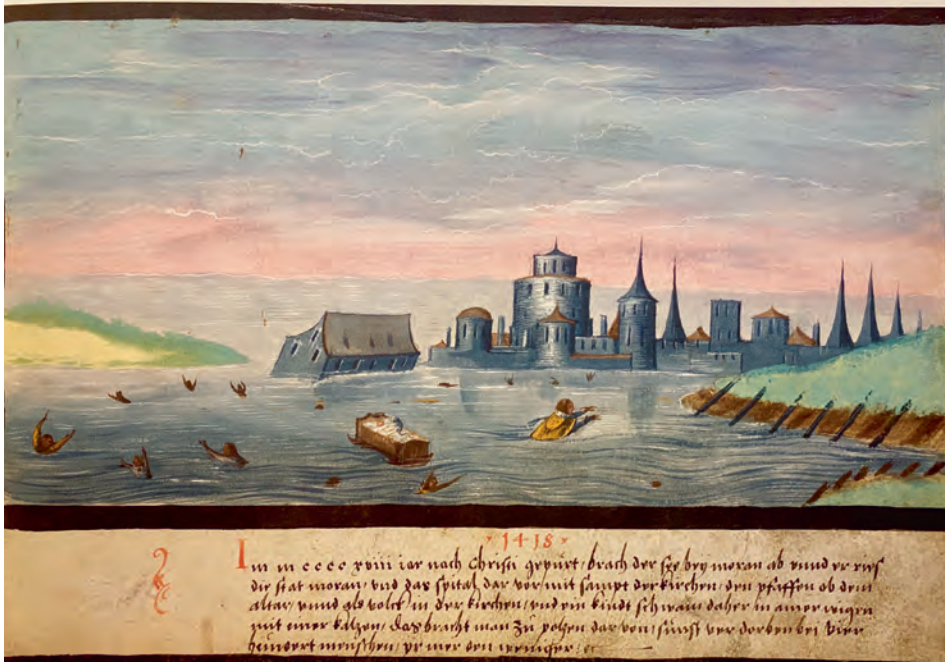 · 1418 ·
Im m cccc xviii iar nach Christi gepurt / brach der see bey moran ab vnnd er reis
die stat moran / vnd das spital dar vor mit sampt der kirchen / den pfaffen ob dem
altar / vnnd als volck in der kirchen / vnd ein kindt schwam daher in ainer wigen
mit einer katzen / das bracht man zů potzen dar von / sunst ver dorben bei vier
hundert menschen / mer den weniger